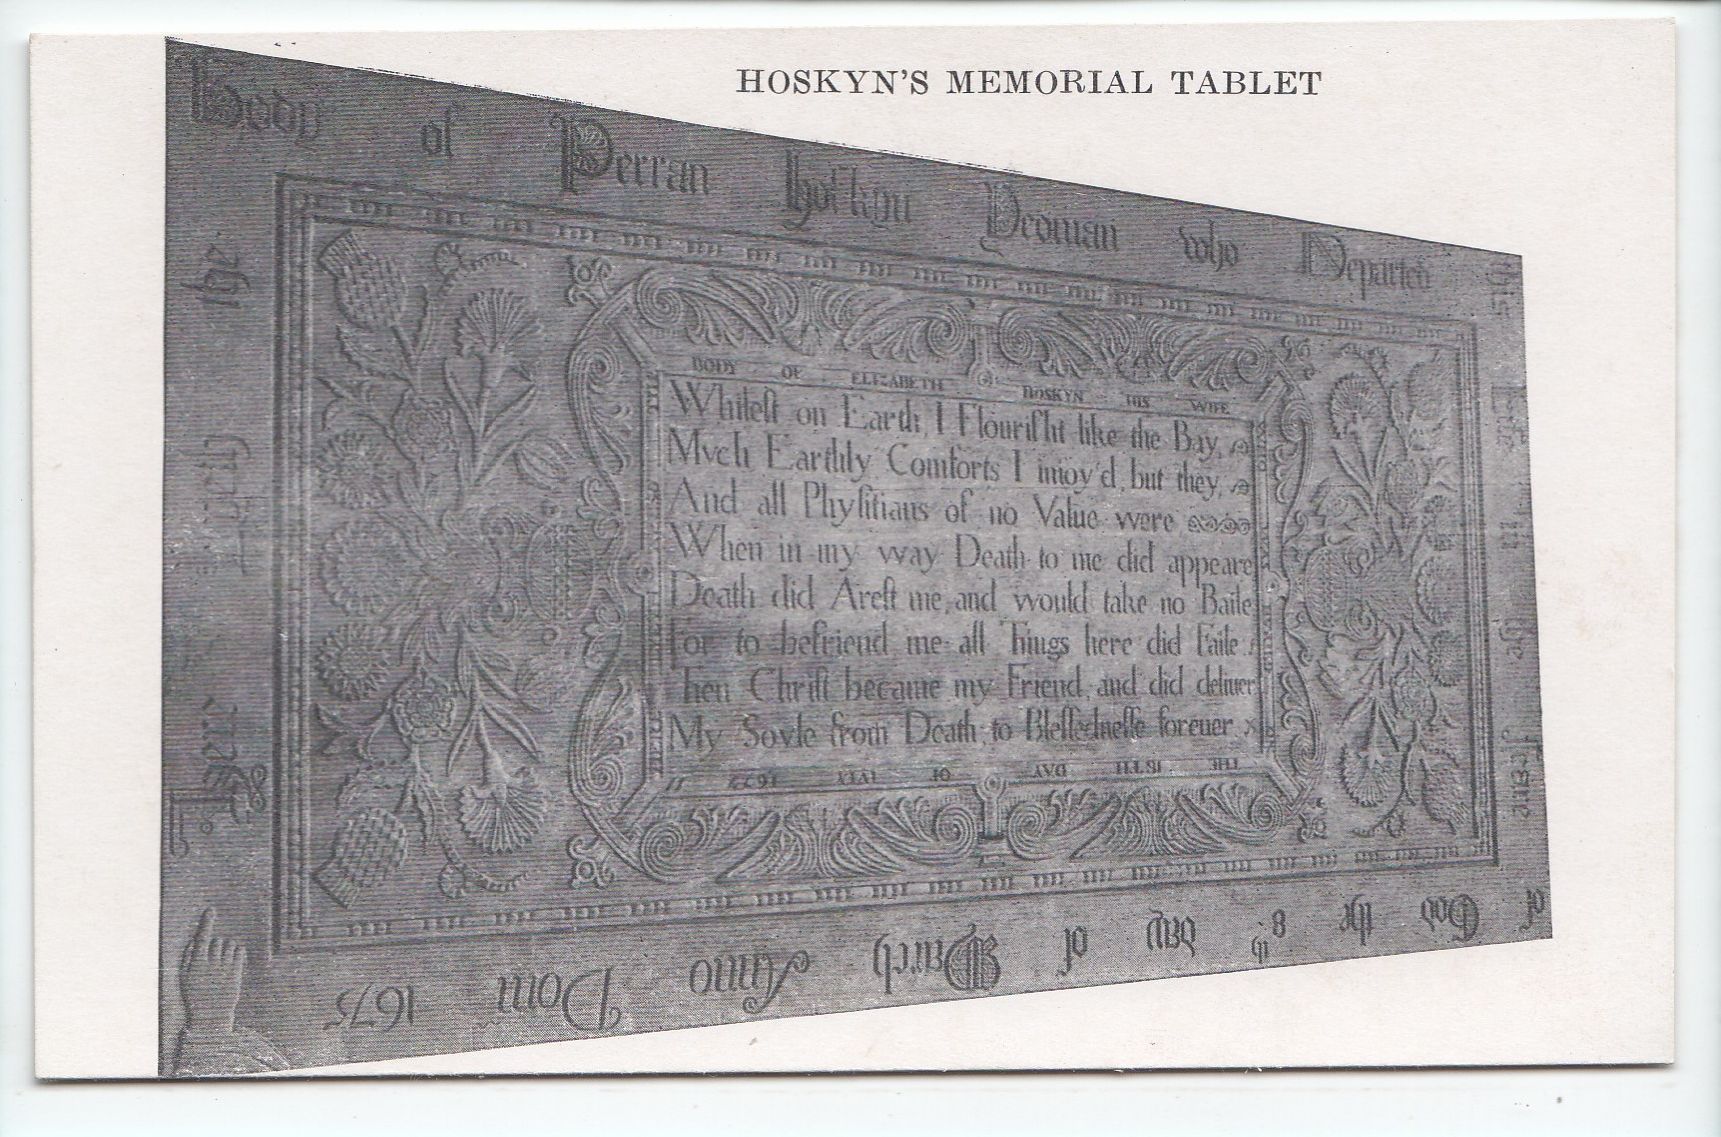 HOSKYN'S MEMORIAL TABLET
Here Lyeth the
Body of Perran Hoskyn Yeoman who Departed
this Life in the feare
of God the 8th day of March Anno Dom 1675
THE
BODY OF ELIZABETH HOSKYN HIS WIFE
WHO
THE 18TH DAY OF IVLY 1633
Whilest on Earth, I Flourisht like the Bay,
Mvch Earthly Comforts I inioy'd, but they,
And all Physitians of no Value were
When in my way Death to me did appeare
Death did Arest me, and would take no Baile
For to befriend me all Things here did faile
Then Christ became my Friend, and did deliuer
My Sovle from Death, to Blessednesse foreuer